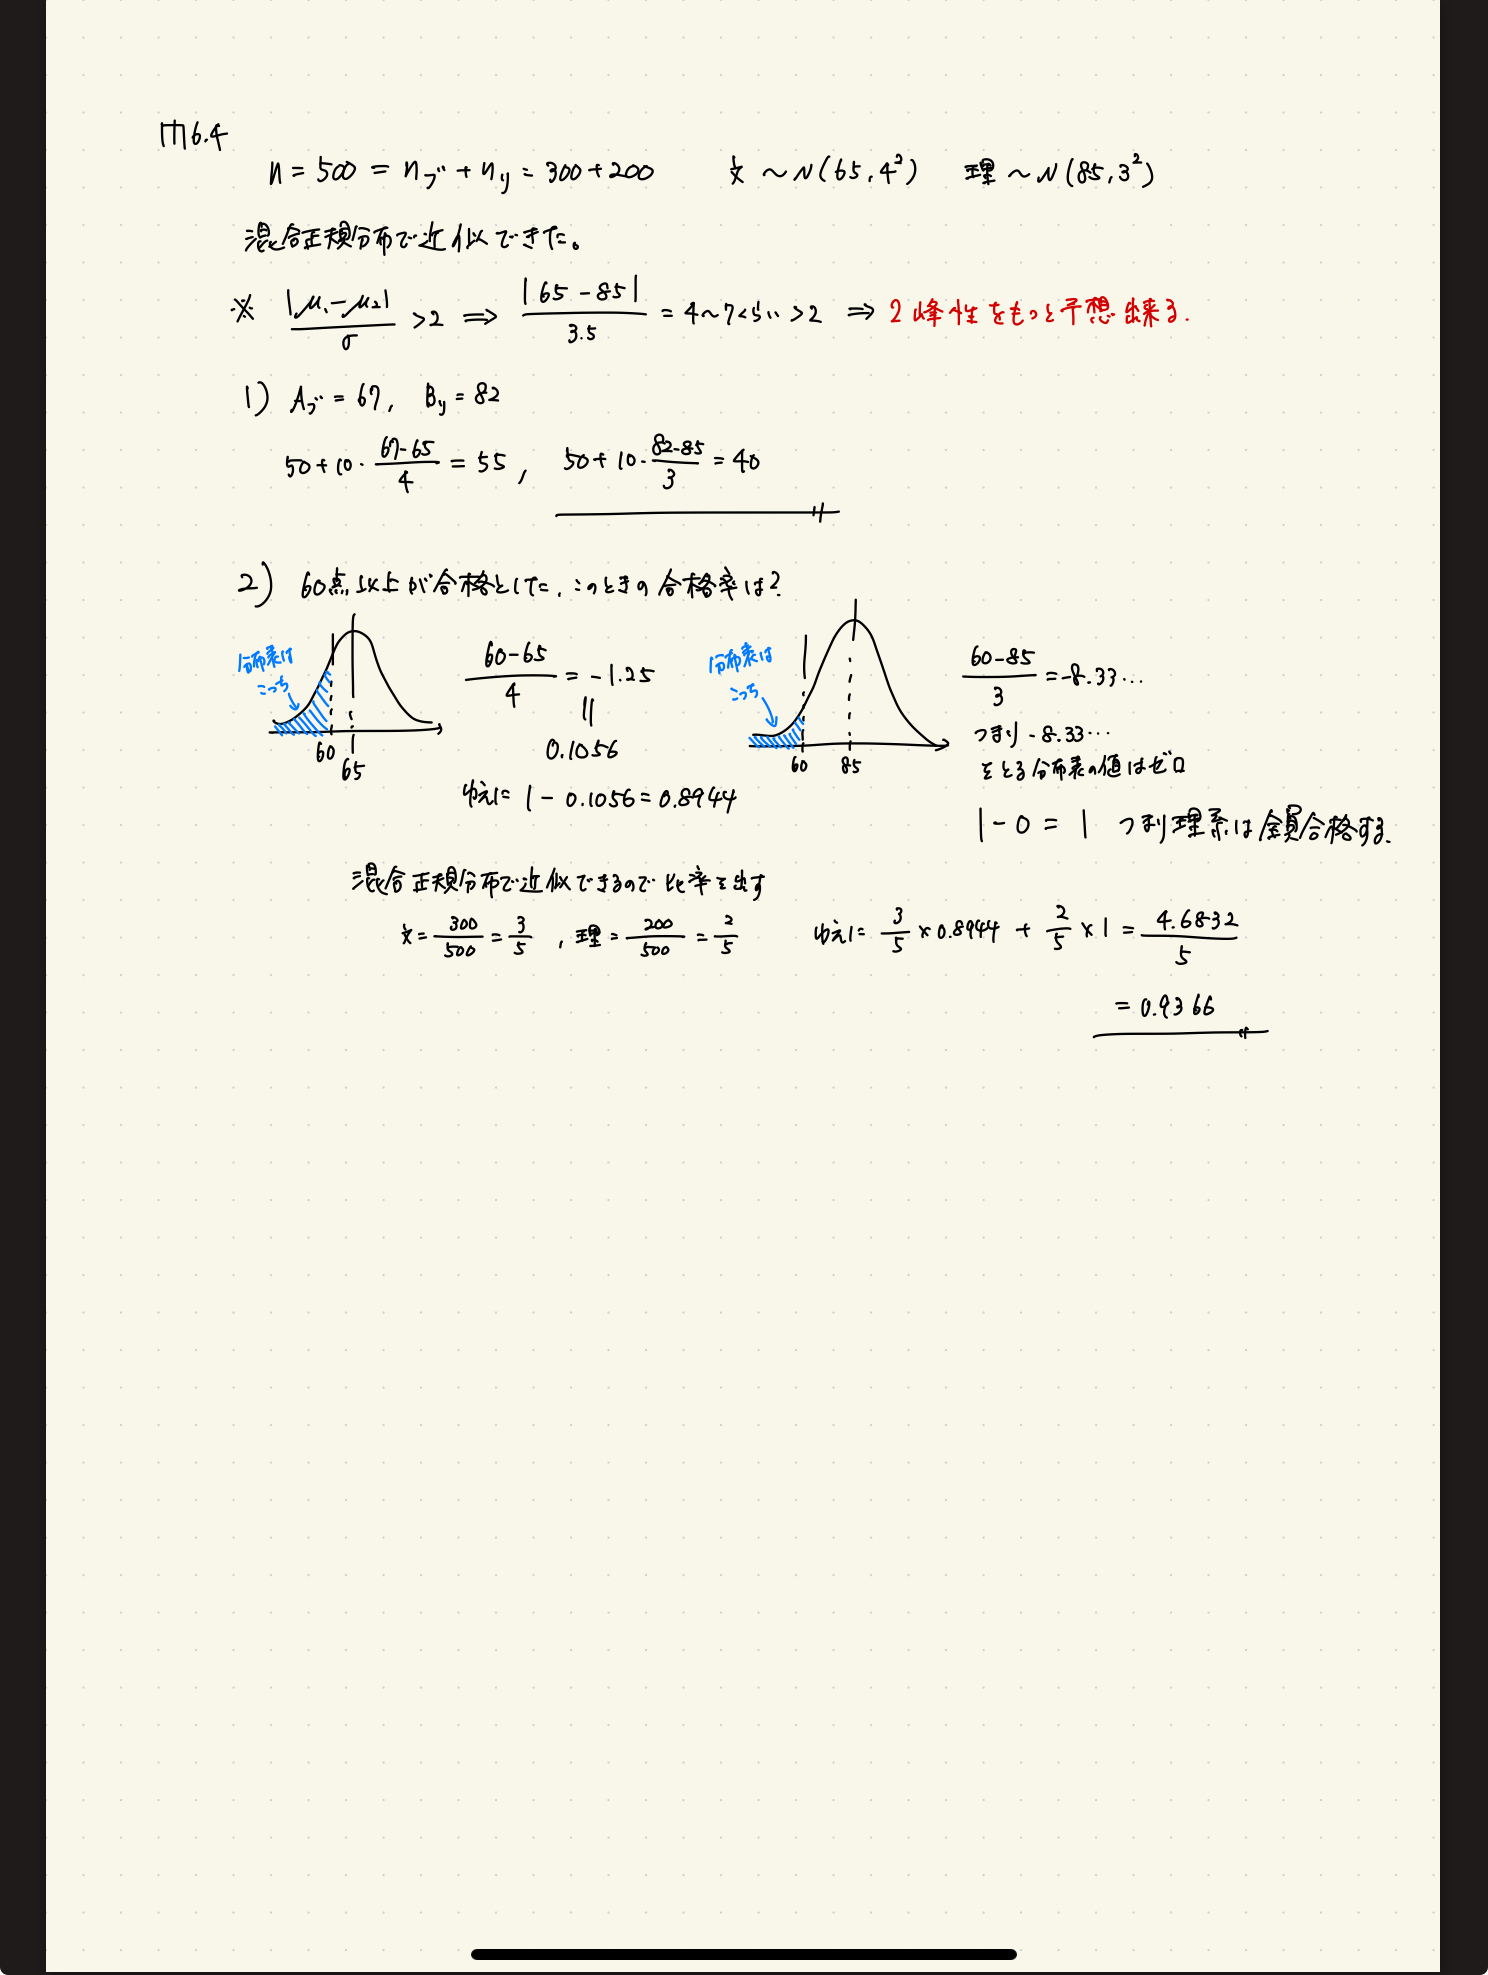 問6.4
n = 500 = n文 + n理 = 300 + 200　文 ~ N(65, 4²)　理 ~ N(85, 3²)
混合正規分布で近似できた。
※ |μ₁-μ₂|/σ > 2 ⇒ |65-85|/3.5 = 4~7くらい > 2 ⇒ 2峰性をもつと予想出来る.
1) A = 67, B = 82
50+10・(67-65)/4 = 55, 50+10・(82-85)/3 = 40
2) 60点以上が合格とした.このときの合格率は?
分布表は
こっち
60
65
(60-65)/4 = -1.25
||
0.1056
ゆえに 1 - 0.1056 = 0.8944
分布表は
こっち
60 85
(60-85)/3 = -8.33…
つまり -8.33…
をとる分布表の値はゼロ
1-0 = 1 つまり理系は全員合格する.
混合正規分布で近似できるので比率を出す
文 = 300/500 = 3/5 , 理 = 200/500 = 2/5
ゆえに 3/5 × 0.8944 + 2/5 × 1 = 4.6832/5
= 0.9366